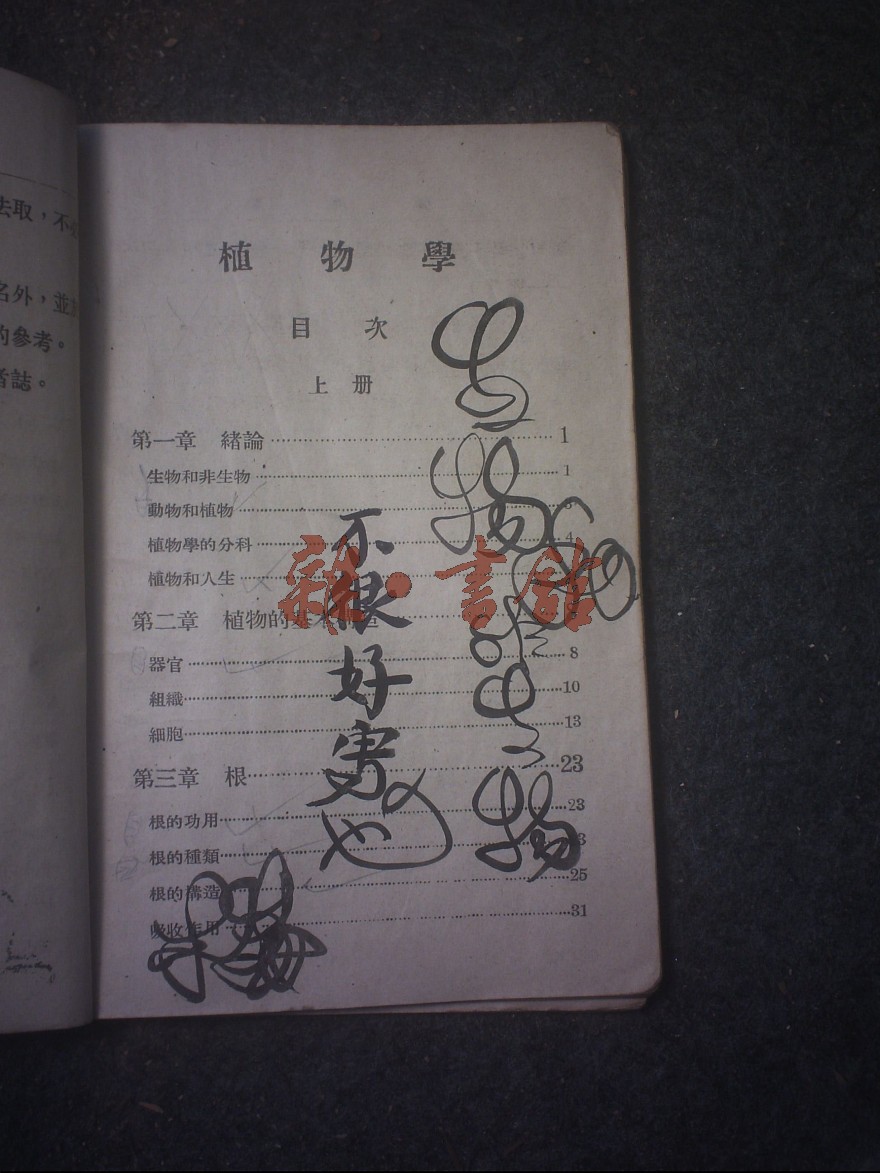 去取，不
名外，並
的參考。
者誌。
植物學
目次
上册
第一章 緒論 1
生物和非生物 1
動物和植物 3
植物學的分科 4
植物和人生
第二章 植物的基本構造
器官 8
組織 10
細胞 13
第三章 根 23
根的功用 23
根的種類 23
根的構造 25
吸收作用 31
不很好
也
生物
非生物
雜·書館